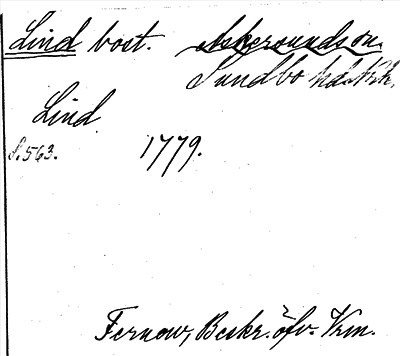 Lind bost. Askersunds sn.
Sundbo hd. Ark.
Lind
S. 563. 1779.
Fernow, Beskr. öfv. Vrm.